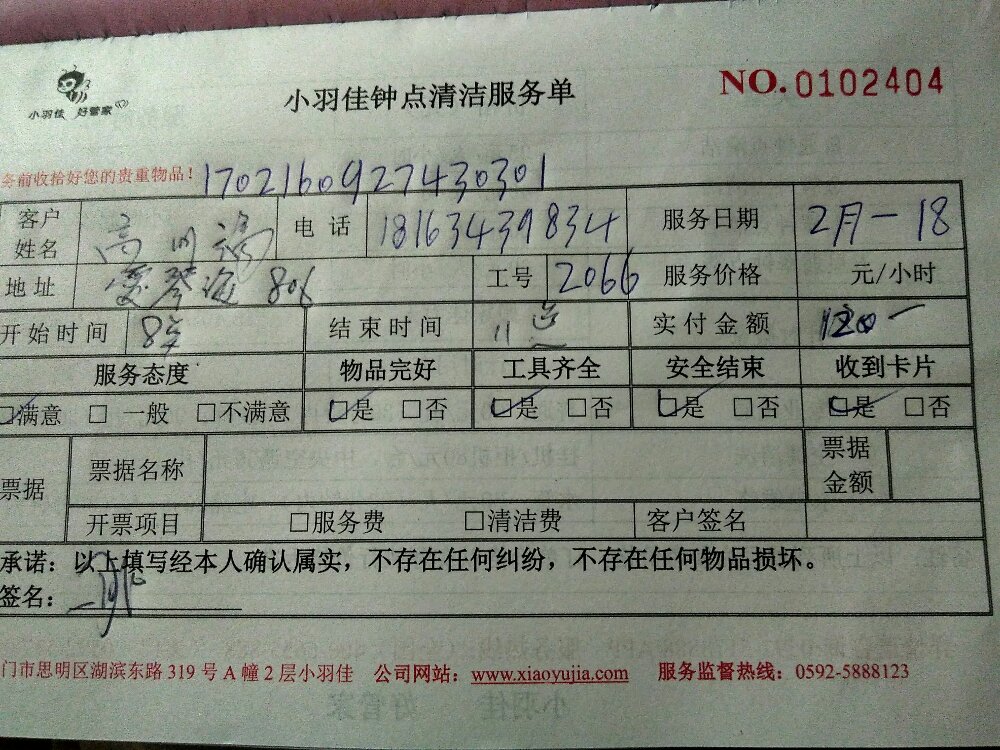 小羽佳 好管家
小羽佳钟点清洁服务单
NO.0102404
务前收拾好您的贵重物品！ 1702160927430301
客户姓名 电话 18163439834 服务日期 2月一18
地址 806 工号 2066 服务价格 元/小时
开始时间 8点 结束时间 11点 实付金额 120一
服务态度 物品完好 工具齐全 安全结束 收到卡片
□满意 □ 一般 □不满意 □是 □否 □是 □否 □是 □否 □是 □否
票据 票据名称 票据金额
开票项目 □服务费 □清洁费 客户签名
承诺：以上填写经本人确认属实，不存在任何纠纷，不存在任何物品损坏。
签名：
门市思明区湖滨东路 319 号 A 幢 2 层小羽佳 公司网站：www.xiaoyujia.com 服务监督热线：0592-5888123